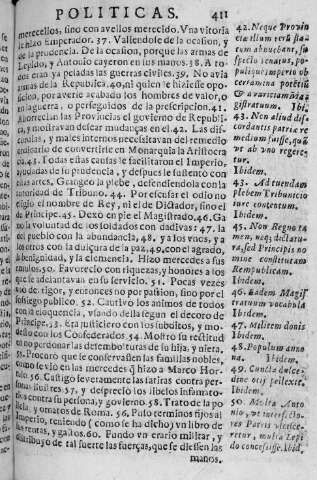 POLITICAS. 411
mercecellos, sino con avellos merecido. Vna vitoria
le hizo Emperador. 37. Valiendole de la ocasion, y
de la prudencia. De la ocasion, porque las armas de
Lepido, y Antonio cayeron en sus manos. 38. A to-
dos eran ya peladas las guerras civiles. 39. No avia
armas de la Republica, 40. ni quien le hiziesse opo-
sicion, por averse acabado los hombres de valor, o
en la guerra, o perseguidos de la prescripcion. 41
Aborrecian las Provincias el govierno de Republi-
ca, y mostravan desear mudanças en el. 42. Las dis-
cordias, y males internos necessitavan del remedio
ordinario de convertirse en Monarquia la Aristocra-
cia. 43. Todas estas causas le facilitaron el Imperio,
ayudadas de su prudencia, y despues le sustentò con
estas artes. Grangeò la plebe, defendiendola con la
autoridad de Tribuno. 44. Por escusar el odio no
eligio el nombre de Rey, ni el de Dictador, sino el
de Principe. 45. Dexò en pie el Magistrado. 46. Ga
nò la voluntad de los soldados con dadivas: 47. la
del pueblo con la abundancia, 48. y a los vnos, y a
los otros con la dulçura de la paz, 49. con el agrado,
la benignidad, y la clemencia. Hizo mercedes a sus
emulos. 50. Favorecio con riquezas, y honores a los
que le adelantavan en su servicio. 51. Pocas vezes
vsò de rigor, y entonces no por passion, sino por el
sossiego publico. 52. Cautivò los animos de todos
con la eloquencia, vsando della segun el decoro de
Principe. 53. Era justiciero con los subditos, y mo-
desto con los Confederados. 54. Mostrò su rectitud
en no perdonar las desembolturas de su hija, y nieta.
55. Procurò que se conservassen las familias nobles,
como se vio en las mercedes q̃ hizo a Marco Hor-
talo. 56. Castigò severamente las satiras contra per-
sonas ilustres. 57. y despreciò los libelos infamato-
rios contra su persona, y govierno. 58. Tratò de la po
licia, y ornatos de Roma. 59. Puso terminos fijos al
Imperio, teniendo (como se ha dicho) vn libro de
sus rentas, y gastos. 60. Fundò vn erario militar, y
distribuyò de tal suerte las fuerças, que se diessen las
manos.
42. Neque Provin
cia illum rerū sta-
tum abnuebant, su-
specto senatus, po-
pulique imperio ob
certamina potētiū
& avaritiam Ma-
gistratum. Ibid.
43. Non aliud dis-
cordantis patria re
medium fuisse, quā
vt ab vno regere-
tur.
Ibidem.
44. Ad tuendam
Plebem Tribunitio
iure contentum.
Ibidem.
45. Non Regno ta
men, neq; dictatu-
ra, sed Principis no
mine constitutam
Rempublicam.
Ibidem.
46. Eadem Magis
tratuum vocabula
Ibidem.
47. Militem donis
Ibidem.
48. Populum anno
na. Ibidem.
49. Cunctos dulce-
dine otij pellexit.
Ibidem.
50. Multa Anto
nio, vt interfecto-
res Patris vlcisce-
retur, multa Lepi
do concessisse. Ibid.